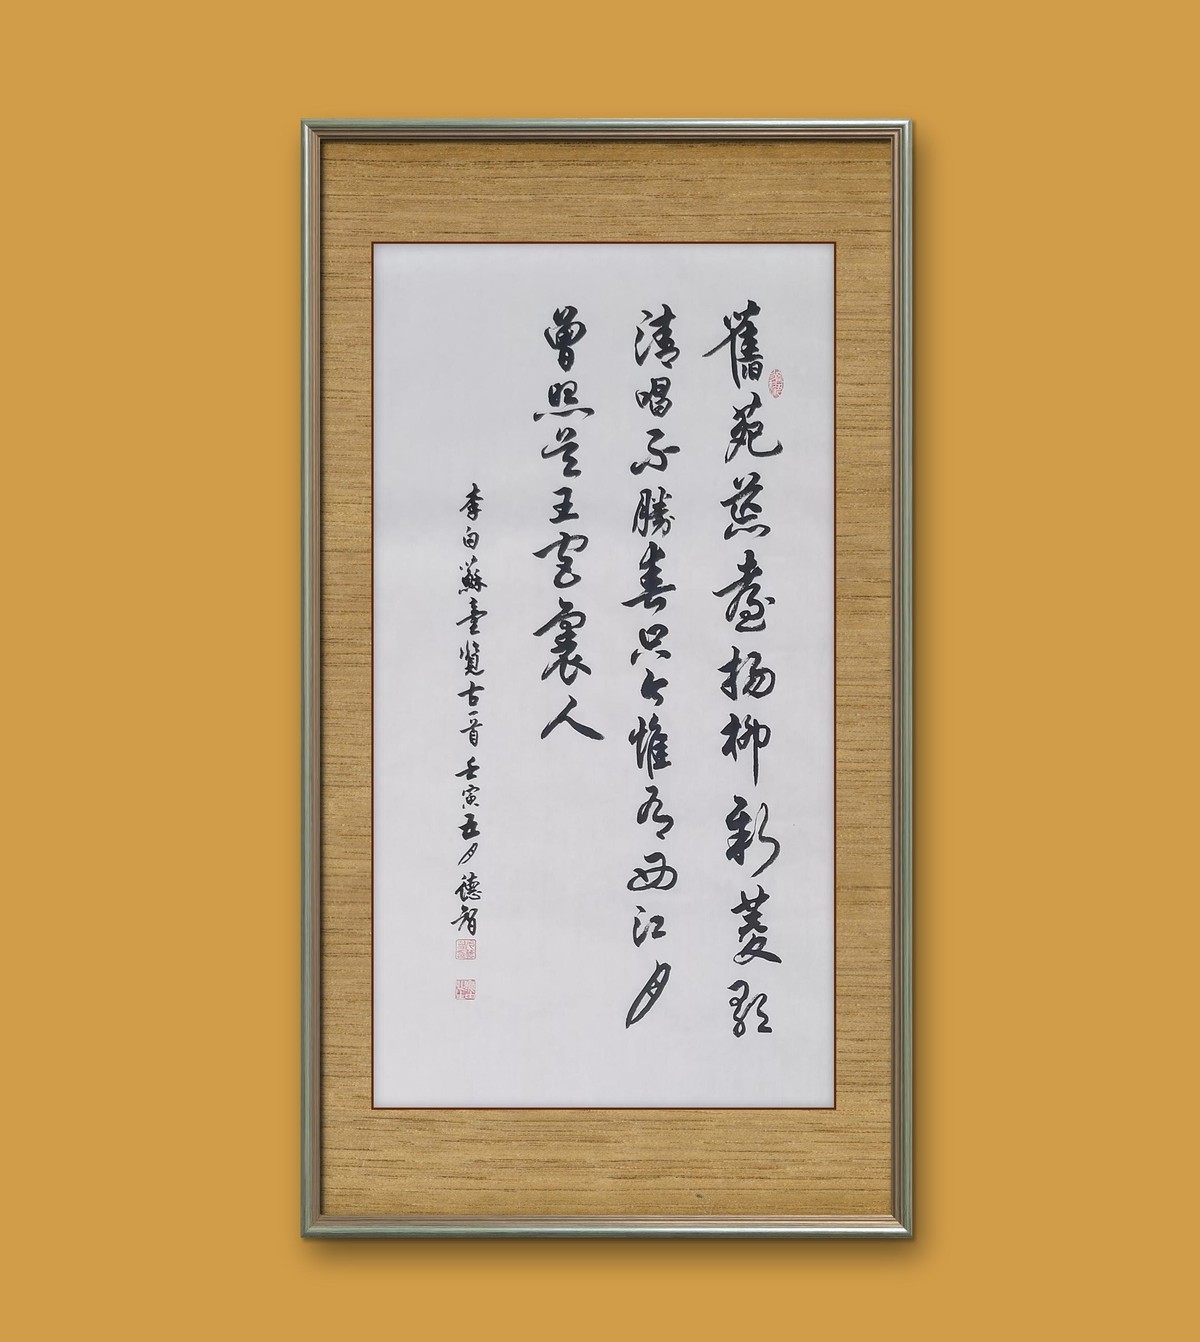 舊苑荒臺楊柳新菱歌
清唱不勝春只今惟有西江月
曾照吴王宫裏人
李白蘇臺覽古一首 壬寅五月德智